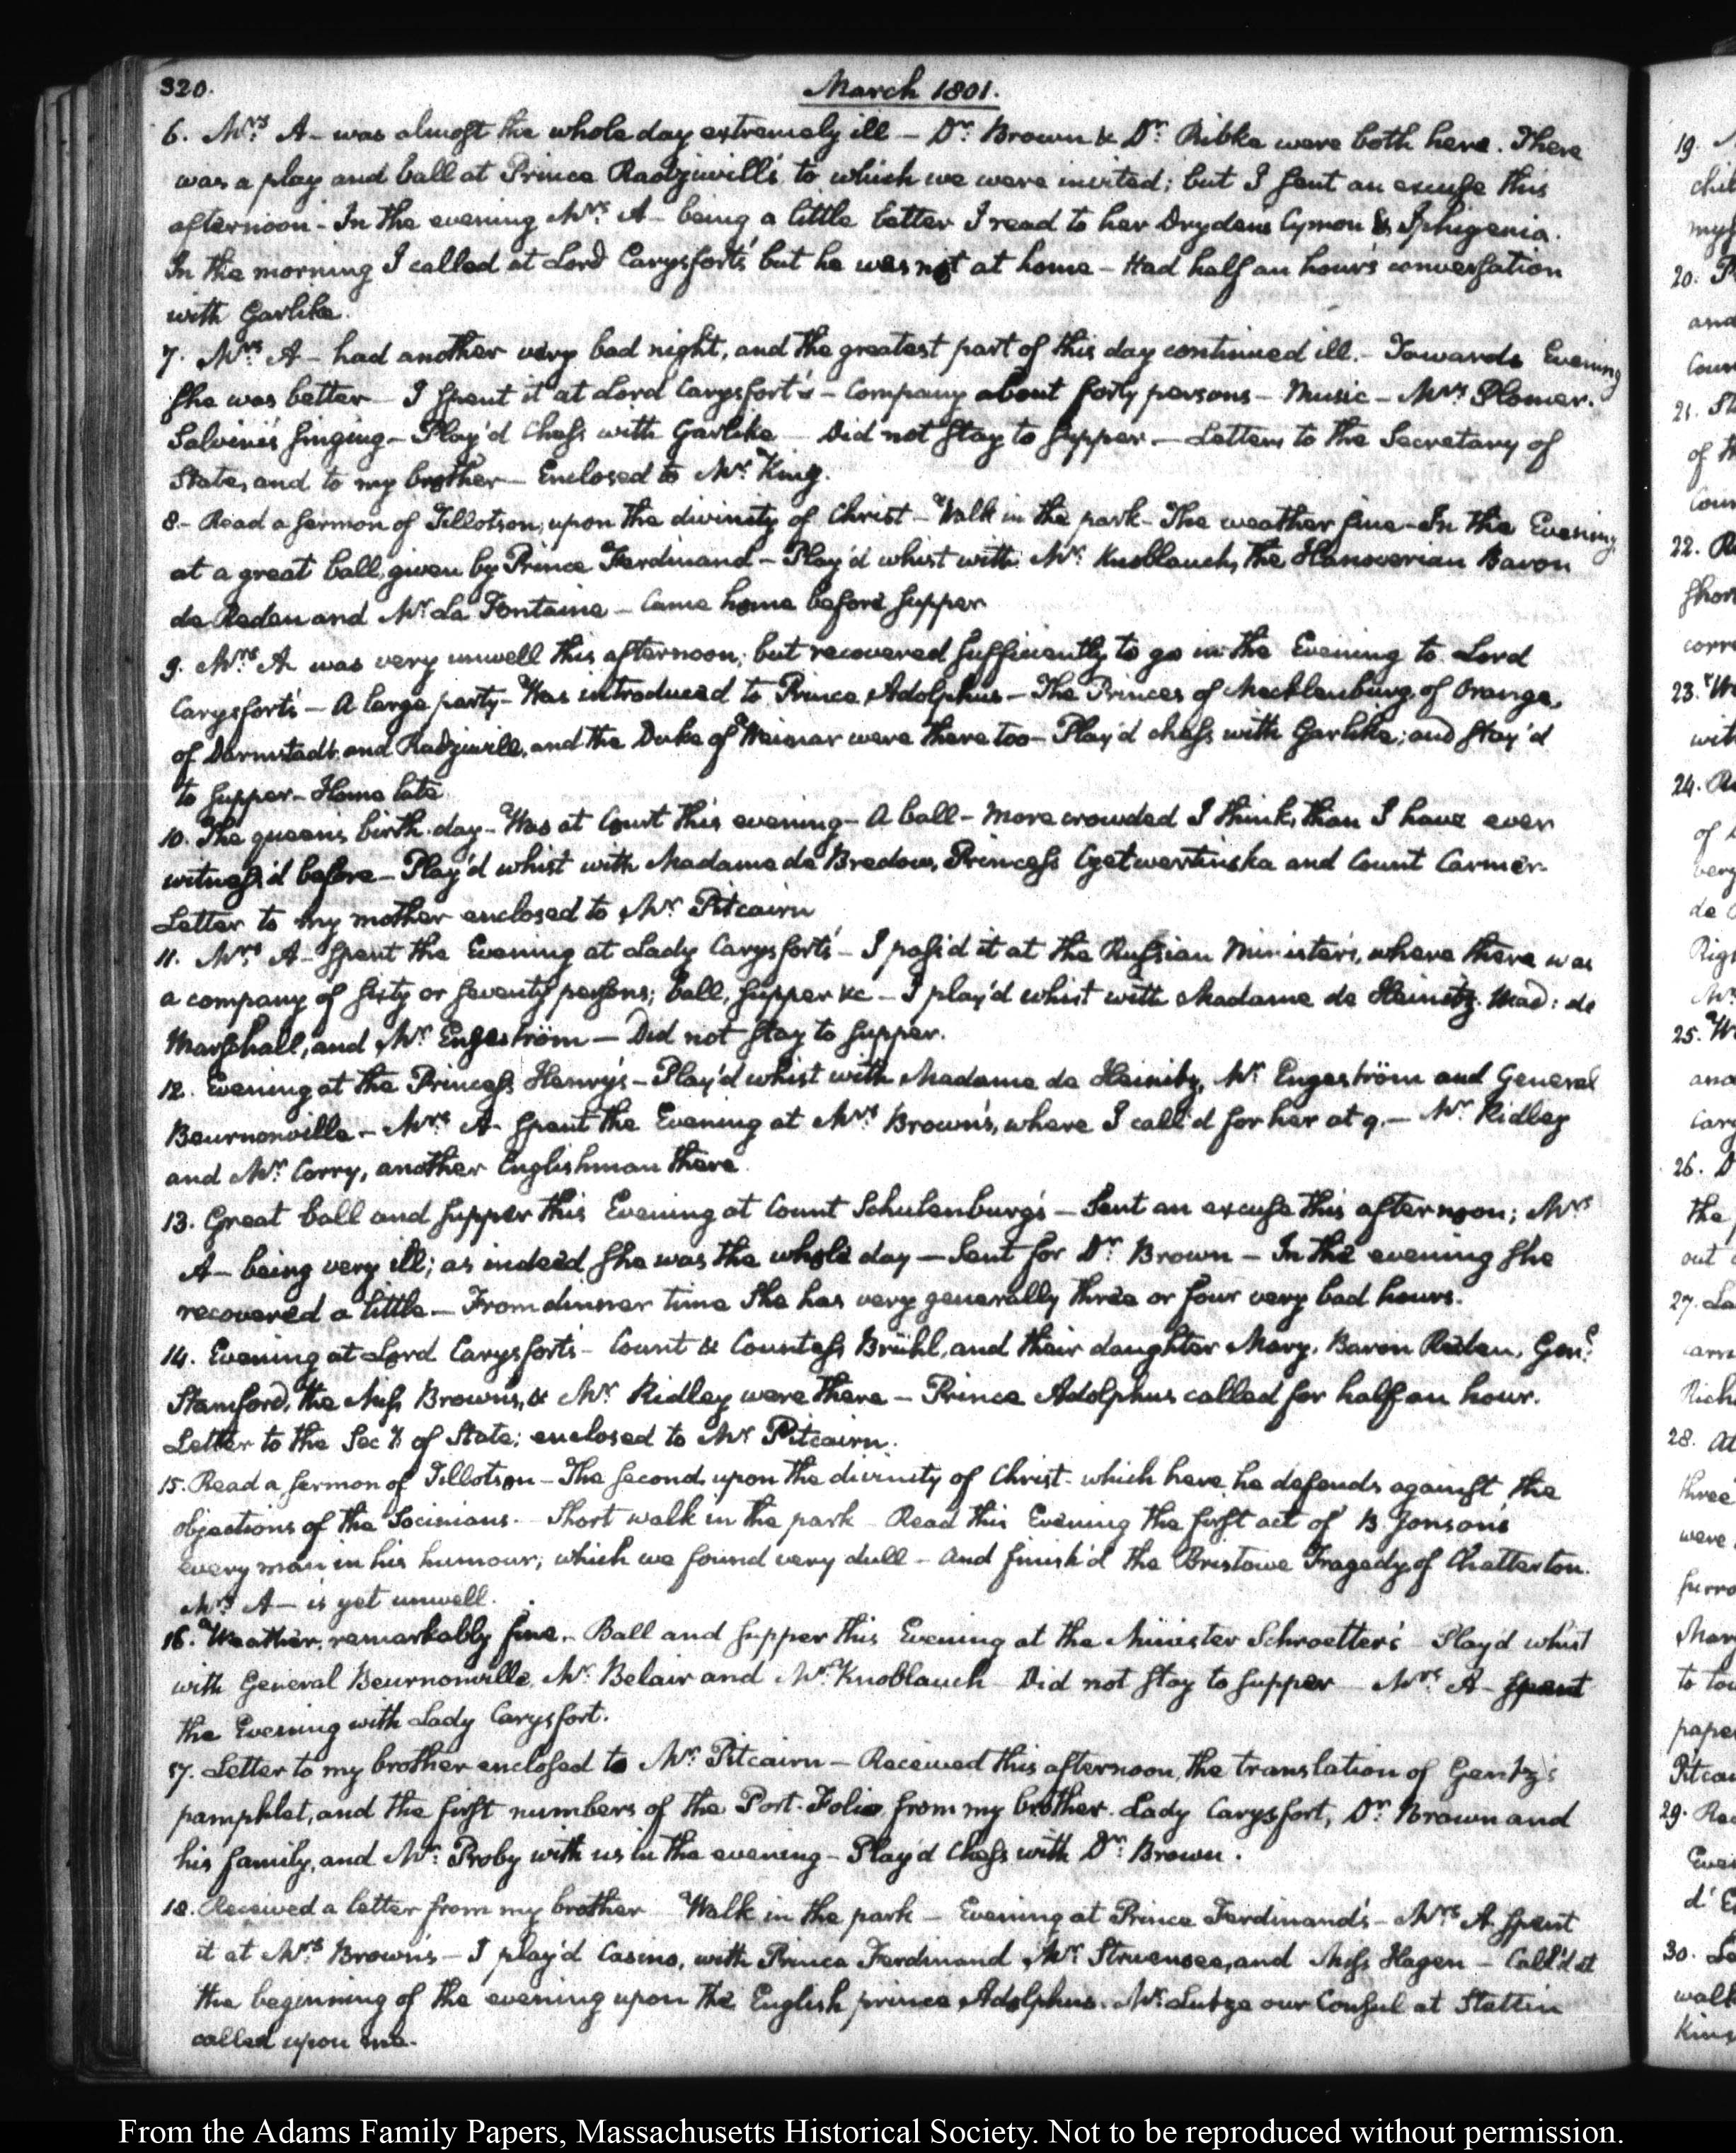 320.
March 1801.
6. Mrs: A— was almost the whole day extremely ill — Dr: Brown & Dr: Ribke were both here. There
was a play and ball at Prince Radziwill's, to which we were invited; but I sent an excuse this
afternoon - In the evening Mrs: A— being a little better I read to her Drydens Cymon & Iphigenia.
In the morning I called at Lord Carysfort's but he was not at home — Had half an hour's conversation
with Garlike.
7. Mrs A— had another very bad night, and the greatest part of this day continued ill. - Towards Evening
she was better — I spent it at Lord Carysfort's — Company about forty persons — Music — Mrs Plomer.
Salvini's singing — Play'd Chess with Garlike — Did not stay to supper. — Letters to the Secretary of
State, and to my brother — Enclosed to Mr. King.
8 - Read a sermon of Tillotson, upon the divinity of Christ — Walk in the park - The weather fine - In the Evening
at a great ball, given by Prince Ferdinand — Play'd whist with Mr. Knoblauch, the Hanoverian Baron
de Reden and Mr. La Fontaine — Came home before supper
9. Mrs A was very unwell this afternoon; but recovered sufficiently to go in the Evening to Lord
Carysfort's — A large party - Was introduced to Prince Adolphus — The Princes of Mecklenburg, of Orange,
of Darmstadt, and Radziwill, and the Duke of Weimar were there too — Play'd chess with Garlike; and stay'd
to supper - Home late
10. The queen's birth-day - Was at Court this evening — A ball — More crowded I think, than I have ever
witness'd before — Play'd whist with Madame de Bredow, Princess Czetwertinska and Count Carmer.
Letter to my mother enclosed to Mr Pitcairn
11. Mrs A— spent the Evening at Lady Carysfort's — I pass'd it at the Russian Minister's, where there was
a company of sixty or seventy persons; ball, supper &c — I play'd whist with Madame de Heinitz. Mad: de
Marshall, and Mr Engeström — Did not stay to supper.
12. Evening at the Princess Henry's — Play'd whist with Madame de Heinitz, Mr Engeström and General
Beurnonville — Mrs A— spent the Evening at Mrs Brown's, where I call'd for her at 9. — Mr Ridley
and Mr. Corry, another Englishman there.
13. Great ball and supper this Evening at Count Schulenburg's — Sent an excuse this afternoon; Mrs
A— being very ill; as indeed she was the whole day — Sent for Dr Brown — In the evening she
recovered a little — From dinner time She has very generally three or four very bad hours.
14. Evening at Lord Carysfort's — Count & Countess Brühl, and their daughter Mary. Baron Reden, Genl:
Stamford, the Miss Browns, & Mr Ridley were there — Prince Adolphus called for half an hour.
Letter to the Secy of State; enclosed to Mr Pitcairn.
15. Read a sermon of Tillotson — The second, upon the divinity of Christ - which here he defends against the
objections of the Socinians. - Short walk in the park - Read this Evening the first act of B. Jonson's
every man in his humour; which we found very dull — And finish'd the Bristowe Tragedy of Chatterton.
Mrs A— is yet unwell.
16. Weather, remarkably fine. - Ball and supper this Evening at the Minister Schroetter's - Play'd whist
with General Beurnonville, Mr: Belair and Mr. Knoblauch - Did not stay to supper — Mrs: A— spent
the Evening with Lady Carysfort.
17. Letter to my brother enclosed to Mr. Pitcairn — Received this afternoon, the translation of Gentz's
pamphlet, and the first numbers of the Port-Folio, from my brother. Lady Carysfort, Dr Brown and
his family, and Mr: Proby with us in the evening — Play'd Chess with Dr. Brown.
18. Received a letter from my brother — Walk in the park — Evening at Prince Ferdinand's — Mrs A. spent
it at Mrs Brown's — I play'd Casino, with Prince Ferdinand Mr. Struensee, and Miss Hagen — Call'd at
the beginning of the evening upon the English prince Adolphus. Mr. Lutze our Consul at Stettin
called upon me.
From the Adams Family Papers, Massachusetts Historical Society. Not to be reproduced without permission.